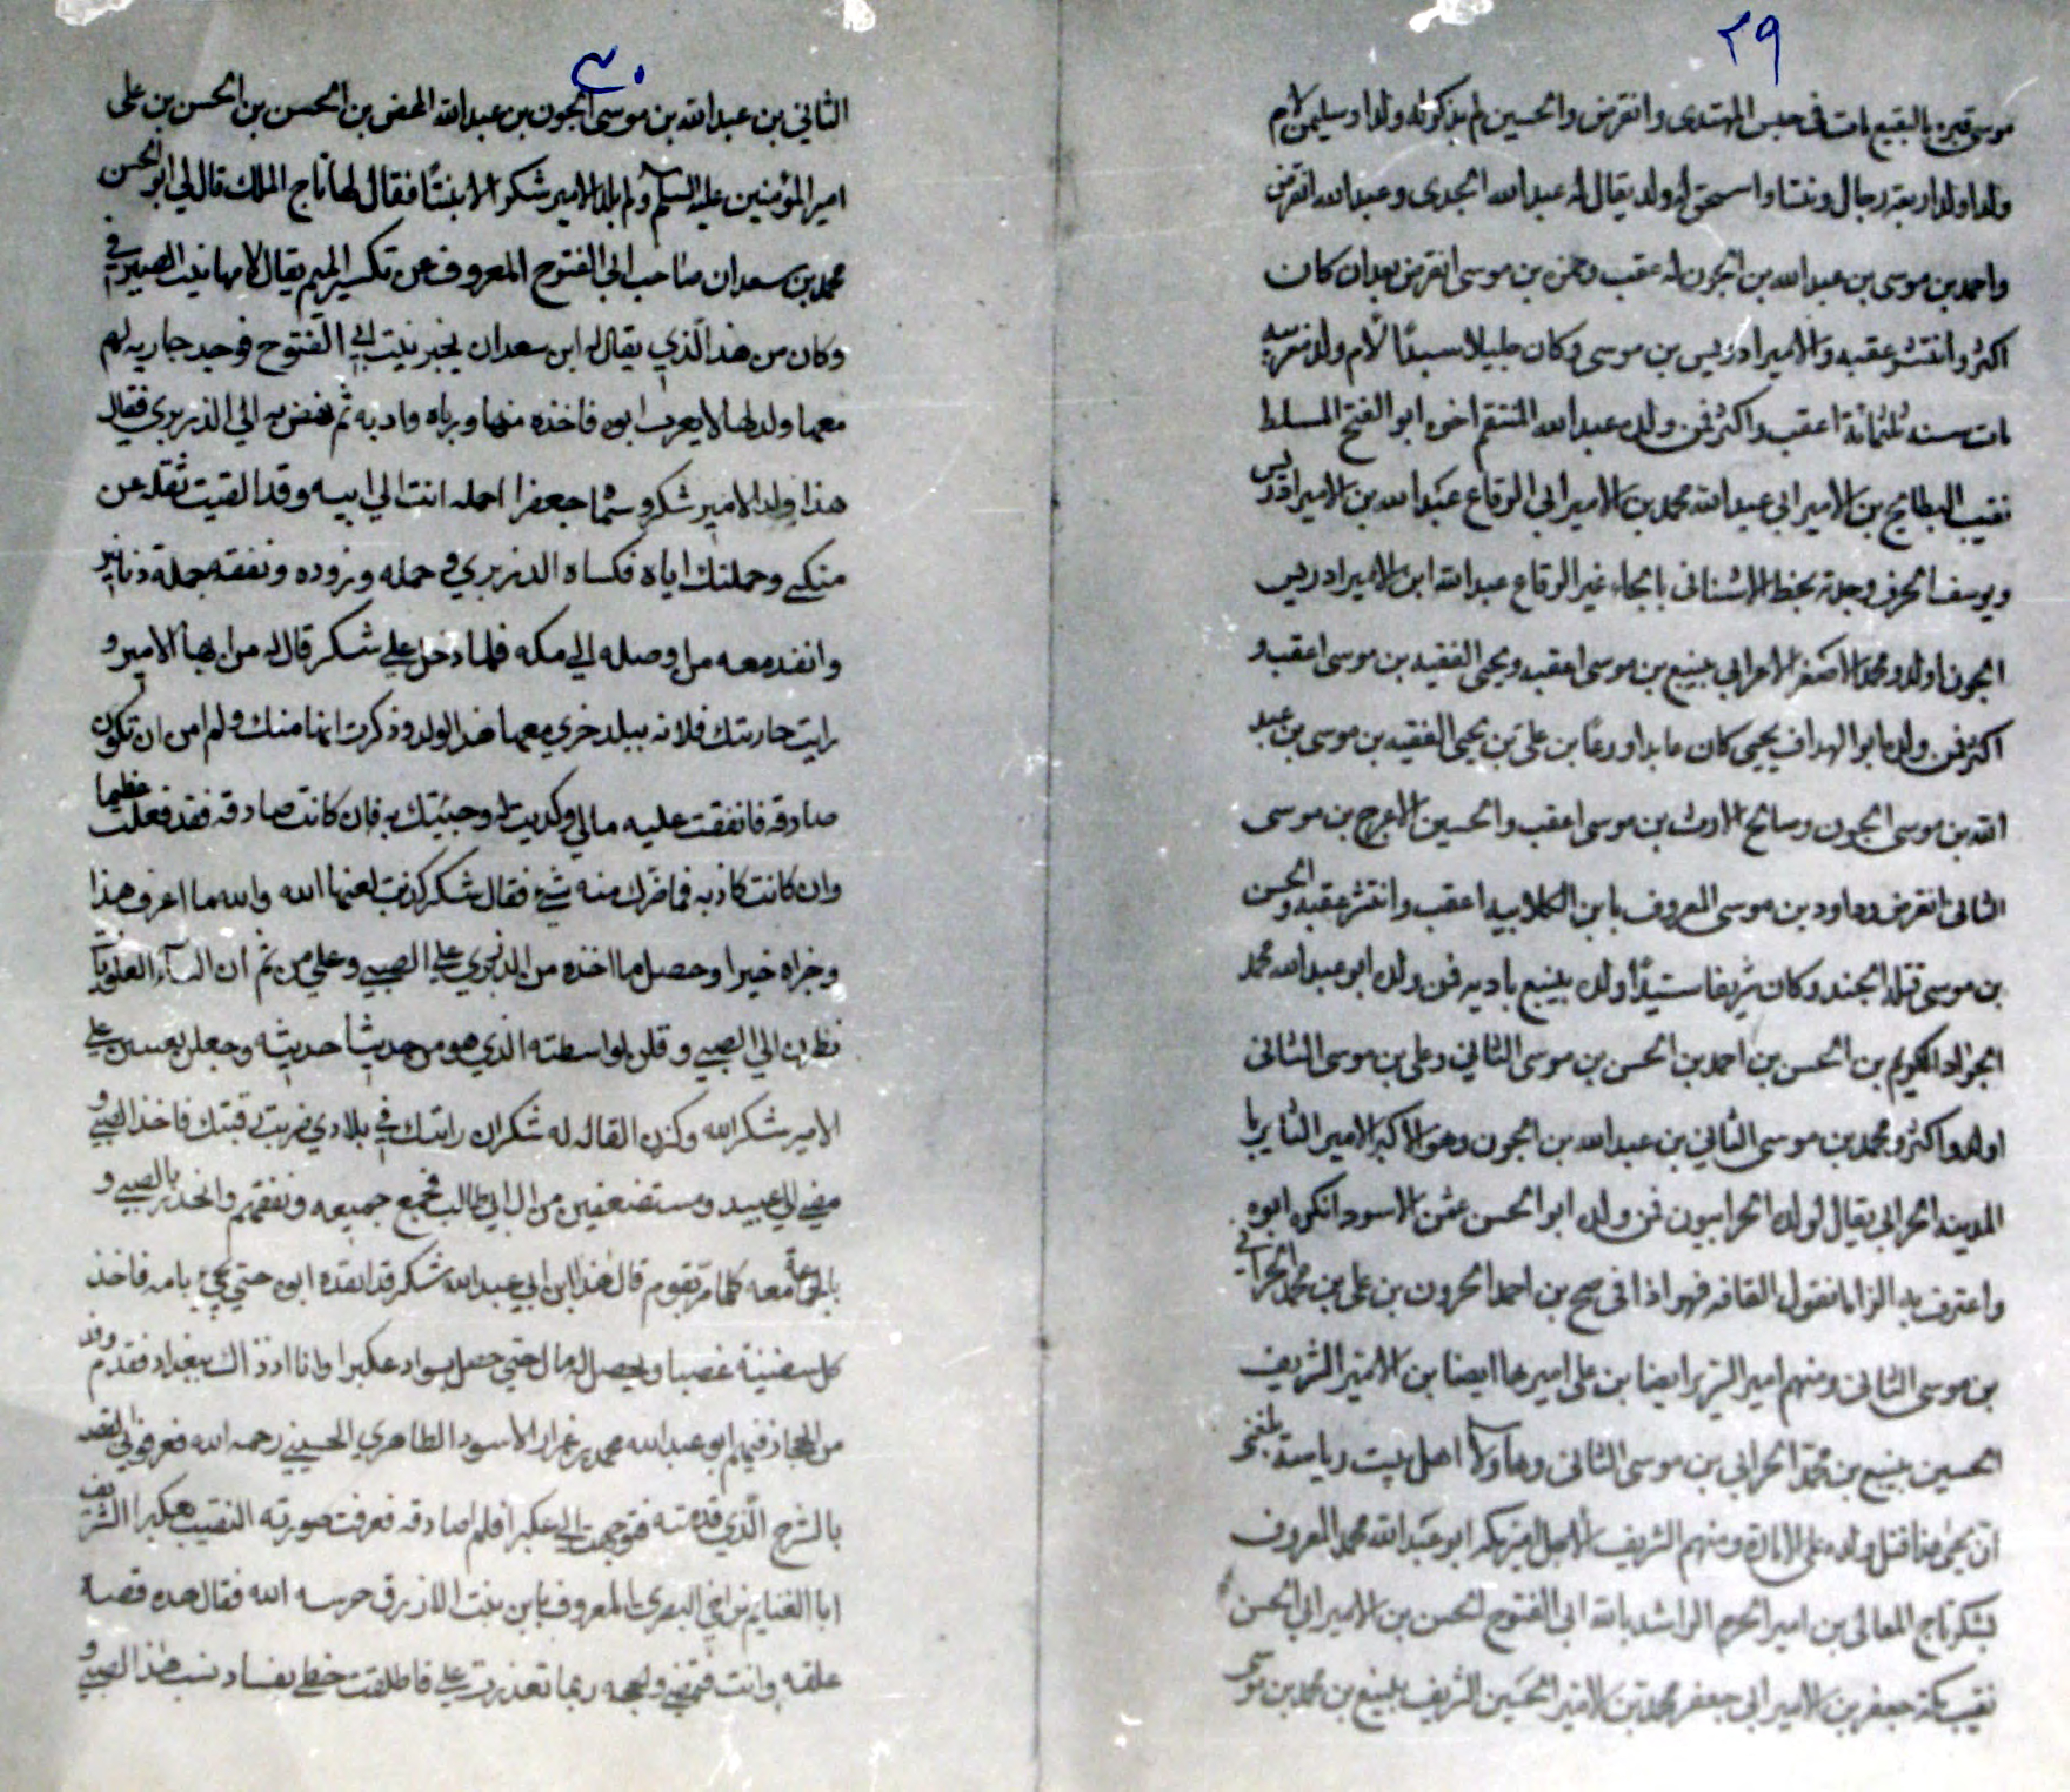 ٢٩
موسى قبره بالبقيع مات في حبس المهتدى وانقرض والحسين لم يذكر له ولدا وسليمن لام
ولد اولدا اربعة رجال وبنتا واسحق له ولد يقال له عبد الله الجدى وعبد الله انقرض
واحمد بن موسى بن عبد الله بن الجون له عقب وحمزه بن موسى انقرض بعد ان كان
اكثر وانتشر عقبه والامير ادريس بن موسى وكان جليلا سيدًا لام ولد مغربيه
مات سنه ثلثمائة اعقب واكثر فمن ولده عبد الله المنتقم اخوه ابو الفتح المسلط
نقيب البطائح بن الامير ابي عبد الله محمد بن الامير ابي الرقاع عبد الله بن الامير ادريس
ويوسف الحرف وجدته بخط الاشنانى بالجاء غير الرقاع عبد الله ابن الامير ادريس
الجون اولد ومحمد الاصغر الاعرابي بينبع بن موسى اعقب ويحيى الفقيه بن موسى اعقب و
اكثر فمن ولده ابو الهداف يحيى كان عابدا ورعًا بن على بن يحيى الفقيه بن موسى بن عبد
الله بن موسى الجون وصالح الارث بن موسى اعقب والحسين الاعرج بن موسى
الثانى انقرض وداود بن موسى المعروف بابن الكلابيه اعقب وانتشر عقبه والحسن
بن موسى قتله الجند وكان شريفا سيّدًا ولده بينبع باديه فمن ولده ابو عبد الله محمد
الجواد الكريم بن الحسن بن احمد بن الحسن بن موسى الثاني وعلى بن موسى الثانى
اولد واكثر ومحمد بن موسى الثاني بن عبد الله بن الجون وهو الاكبر الامير الثاير با
المدينه الحرانى يقال لولده الحرانيون فمن ولده ابو الحسن الاسود انكره ابوه
واعترف به الزاما بقول القافه فهو اذا فى صح بن احمد الحرون بن على بن محمد الحرانى
بن موسى الثانى ومنهم امير السرير ايضا بن على اميرها ايضا بن الامير الشريف
الحسين بينبع بن محمد الحرانى بن موسى الثانى وهاولا اهل بيت رياسة
ان يحيى هنا قتل ولده على الامارة ومنهم الشريف الاجل امير مكه ابو عبد الله محمد المعروف
بشكر تاج المعالى بن امير الحرم الراشد بالله ابى الفتوح الحسن بن الامير ابي الحسن
نقيب مكة جعفر بن الامير ابى جعفر محمد بن الامير الحسين الشريف بينبع بن محمد بن موسى
٣٠
الثاني بن عبد الله بن موسى الجون بن عبد الله المحض بن الحسن بن الحسن بن على
امير المؤمنين عليه السلم ولم يلد الامير شكر الا بنتًا فقال لها تاج الملك قال لي ابو الحسن
محمد بن سعدان صاحب ابي الفتوح المعروف عن تكسير الميم يقال لامها بنت الصيرفي
وكان من هذا الّذي يقال له ابن سعدان يخبر بنت ابي الفتوح فوجد جاريه لهم
معها ولد لها لا يعرف ابوه فاخذه منها ورباه وادبه ثم نهض به الي الدزبري فقال
هذا ولد الامير شكر وسمّا جعفرا احمله انت الي ابيه وقد القيت ثقله عن
منكبي وحملتك اياه فكساه الدزبري وحمله وزوده ونفقه جملة دنانير
وانفد معه من اوصله الي مكه فلما دخل علي شكر قال له من ايها الامير و
رايت جاريتك فلانه ببلد خري معها هذا الولد وذكرت انها منك ولم امن ان تكون
صادقه فانفقت عليه مالي وكديت له وجيتك به فان كانت صادقه فقد فعلت عظيما
وان كانت كاذبه فما ضرك منه شي فقال شكر كذبت لعنها الله والله ما اعرف هذا
وجزاه خيرا وحصل ما اخذه من الدزبري علي الصبي وعلي من ثم ان النسآء العلويات
نظرن الي الصبي وقلن لواسطته الذي هو من حديثا حديثه وجعلن يعبسن علي
الامير شكر الله وكثرن القاله له شكر ان رايتك في بلادي ضربت رقبتك فاخذ الصبي و
مضي الي عبيد ومستضعفين من ال ابي طالب فجمع جميعه ونفقتهم وانحدر بالصبي و
بالجماعة معه كلما مر بقوم قال هذا ابن ابي عبد الله شكر قد انفده ابوه حتي يجي بامه فاخذ
كل سفينة غصبا وحصل له مال حتي حصل بسواد عكبرا وانا اذ ذاك ببغداد فقدم وفد
من الحجاز فيهم ابو عبد الله محمد بن عرار الاسود الطاهري الحسيني رحمه الله فعرفوني القصه
بالشرح الّذي قدمته فتوجهت الي عكبرا فلم اصادفه فعرفت صورته النقيب بعكبرا الشريف
ابا الغنايم بن اخي البصري المعروف بابن بنت الازرق حرسه الله فقال هذه قصه
علقه وانت تمضي ولحجه ربما تعذرت علي فاطلقت خطي بفساد نسب هذا الصبي و